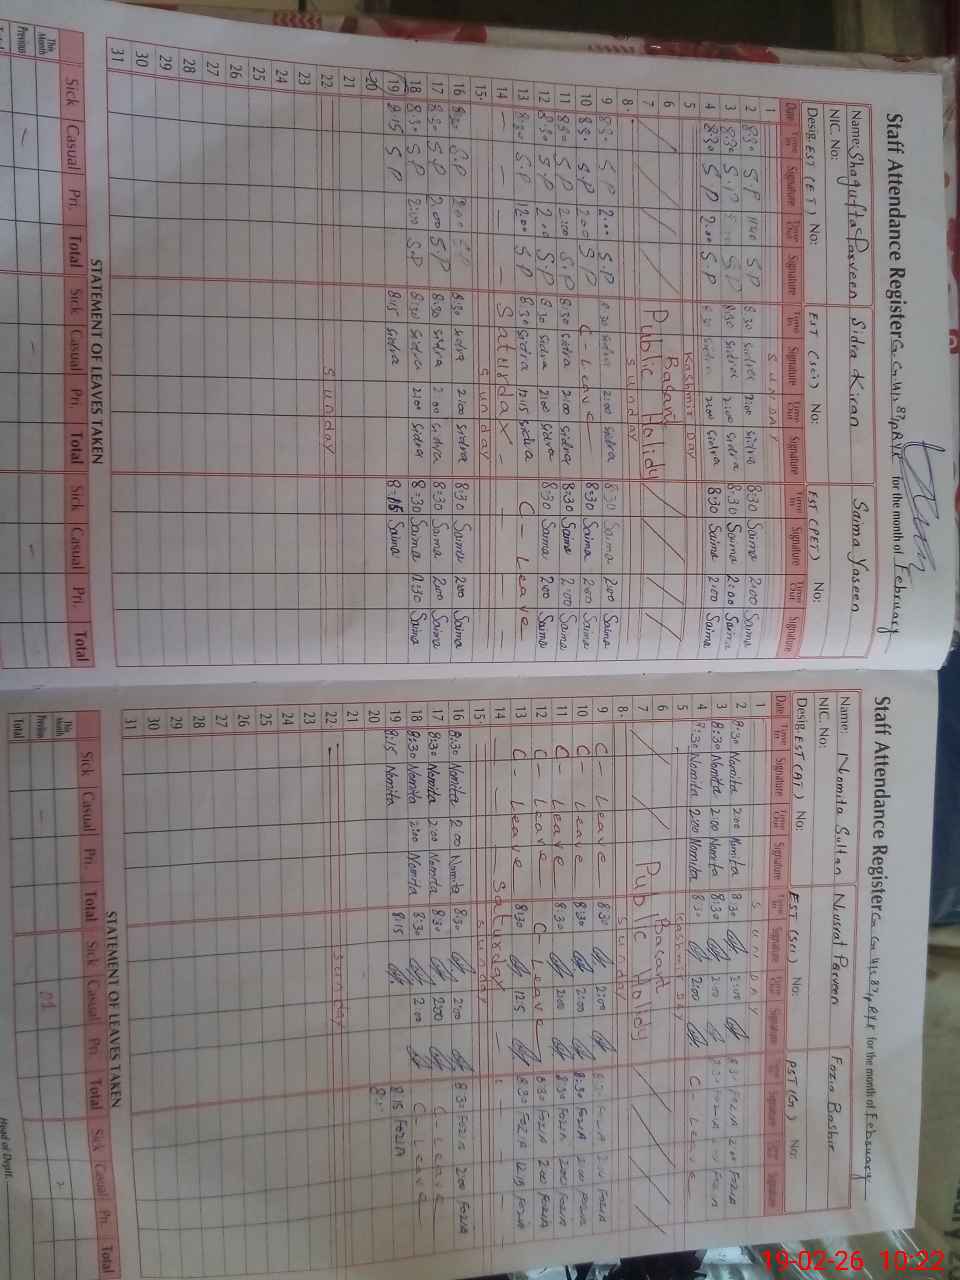 Staff Attendance Register Gov. Gn. H/S. 87/P R.Y.K for the month of February
Name: Shagufta Parveen Sidra Kiran Saima Yaseen
NIC. No:
Desig. EST (ET) No: EST (Sci) No: EST (PET) No:
Date Time In Signature Time Out Signature Time In Signature Time Out Signature Time In Signature Time Out Signature
1 SUNDAY
2 8:30 S.P 11:40 S.P 8:30 Sidra 2:00 Sidra 8:30 Saima 2:00 Saima
3 8:30 S.P S.P 8:30 Sidra 2:00 Sidra 8:30 Saima 2:00 Saima
4 8:30 S.P 2:00 S.P 8:30 Sidra 2:00 Sidra 8:30 Saima 2:00 Saima
5 Kashmir Day
6 Basant
7 Public Holidy
8. Sunday
9 8:30 S.P 2:00 S.P 8:30 Sidra 2:00 Sidra 8:30 Saima 2:00 Saima
10 8:30 S.P 2:00 S.P C - Leave 8:30 Saima 2:00 Saima
11 8:30 S.P 2:00 S.P 8:30 Sidra 2:00 Sidra 8:30 Saima 2:00 Saima
12 8:30 S.P 2:00 S.P 8:30 Sidra 2:00 Sidra 8:30 Saima 2:00 Saima
13 8:30 S.P 12:00 S.P 8:30 Sidra 12:15 Sidra C - Leave
14 Saturday
15. Sunday
16 8:30 S.P 2:00 S.P 8:30 Sidra 2:00 Sidra 8:30 Saima 2:00 Saima
17 8:30 S.P 2:00 S.P 8:30 Sidra 2:00 Sidra 8:30 Saima 2:00 Saima
18 8:30 S.P 2:00 S.P 8:30 Sidra 2:00 Sidra 8:30 Saima 11:30 Saima
19 8:15 S.P 8:15 Sidra 8:15 Saima
20
21
22 Sunday
23
24
25
26
27
28
29
30
31
STATEMENT OF LEAVES TAKEN
Sick Casual Pri. Total Sick Casual Pri. Total Sick Casual Pri. Total
This Month
Previous
Total
Staff Attendance Register Gov. Gn. H/S. 87/P R.Y.K for the month of February
Name: Nomita Sultan Nusrat Parveen Fozia Bashir
NIC. No:
Desig. EST (AT) No: EST (Sci) No: PST (G) No:
Date Time In Signature Time Out Signature Time In Signature Time Out Signature Time In Signature Time Out Signature
1 SUNDAY
2 8:30 Nomita 2:00 Nomita 8:30 2:00 8:30 FOZIA 2:00 FOZIA
3 8:30 Nomita 2:00 Nomita 8:30 2:00 8:30 FOZIA 2:00 FOZIA
4 8:30 Nomita 2:00 Nomita 8:30 2:00 C - Leave
5 Kashmir Day
6 Basant
7 Public Holidy
8. Sunday
9 C - Leave 8:30 2:00 8:30 FOZIA 2:00 FOZIA
10 C - Leave 8:30 2:00 8:30 FOZIA 2:00 FOZIA
11 C - Leave 8:30 2:00 8:30 FOZIA 2:00 FOZIA
12 C - Leave C - Leave 8:30 FOZIA 2:00 FOZIA
13 C - Leave 8:30 12:15 8:30 FOZIA 12:15 FOZIA
14 Saturday
15. Sunday
16 8:30 Nomita 2:00 Nomita 8:30 2:00 8:30 FOZIA 2:00 FOZIA
17 8:30 Nomita 2:00 Nomita 8:30 2:00 C - Leave
18 8:30 Nomita 2:00 Nomita 8:30 2:00 C - Leave
19 8:15 Nomita 8:15 8:15 FOZIA
20
21
22. Sunday
23
24
25
26
27
28
29
30
31
STATEMENT OF LEAVES TAKEN
Sick Casual Pri. Total Sick Casual Pri. Total Sick Casual Pri. Total
This Month
Previous
Total
Head of Deptt.
19-02-26 10:22